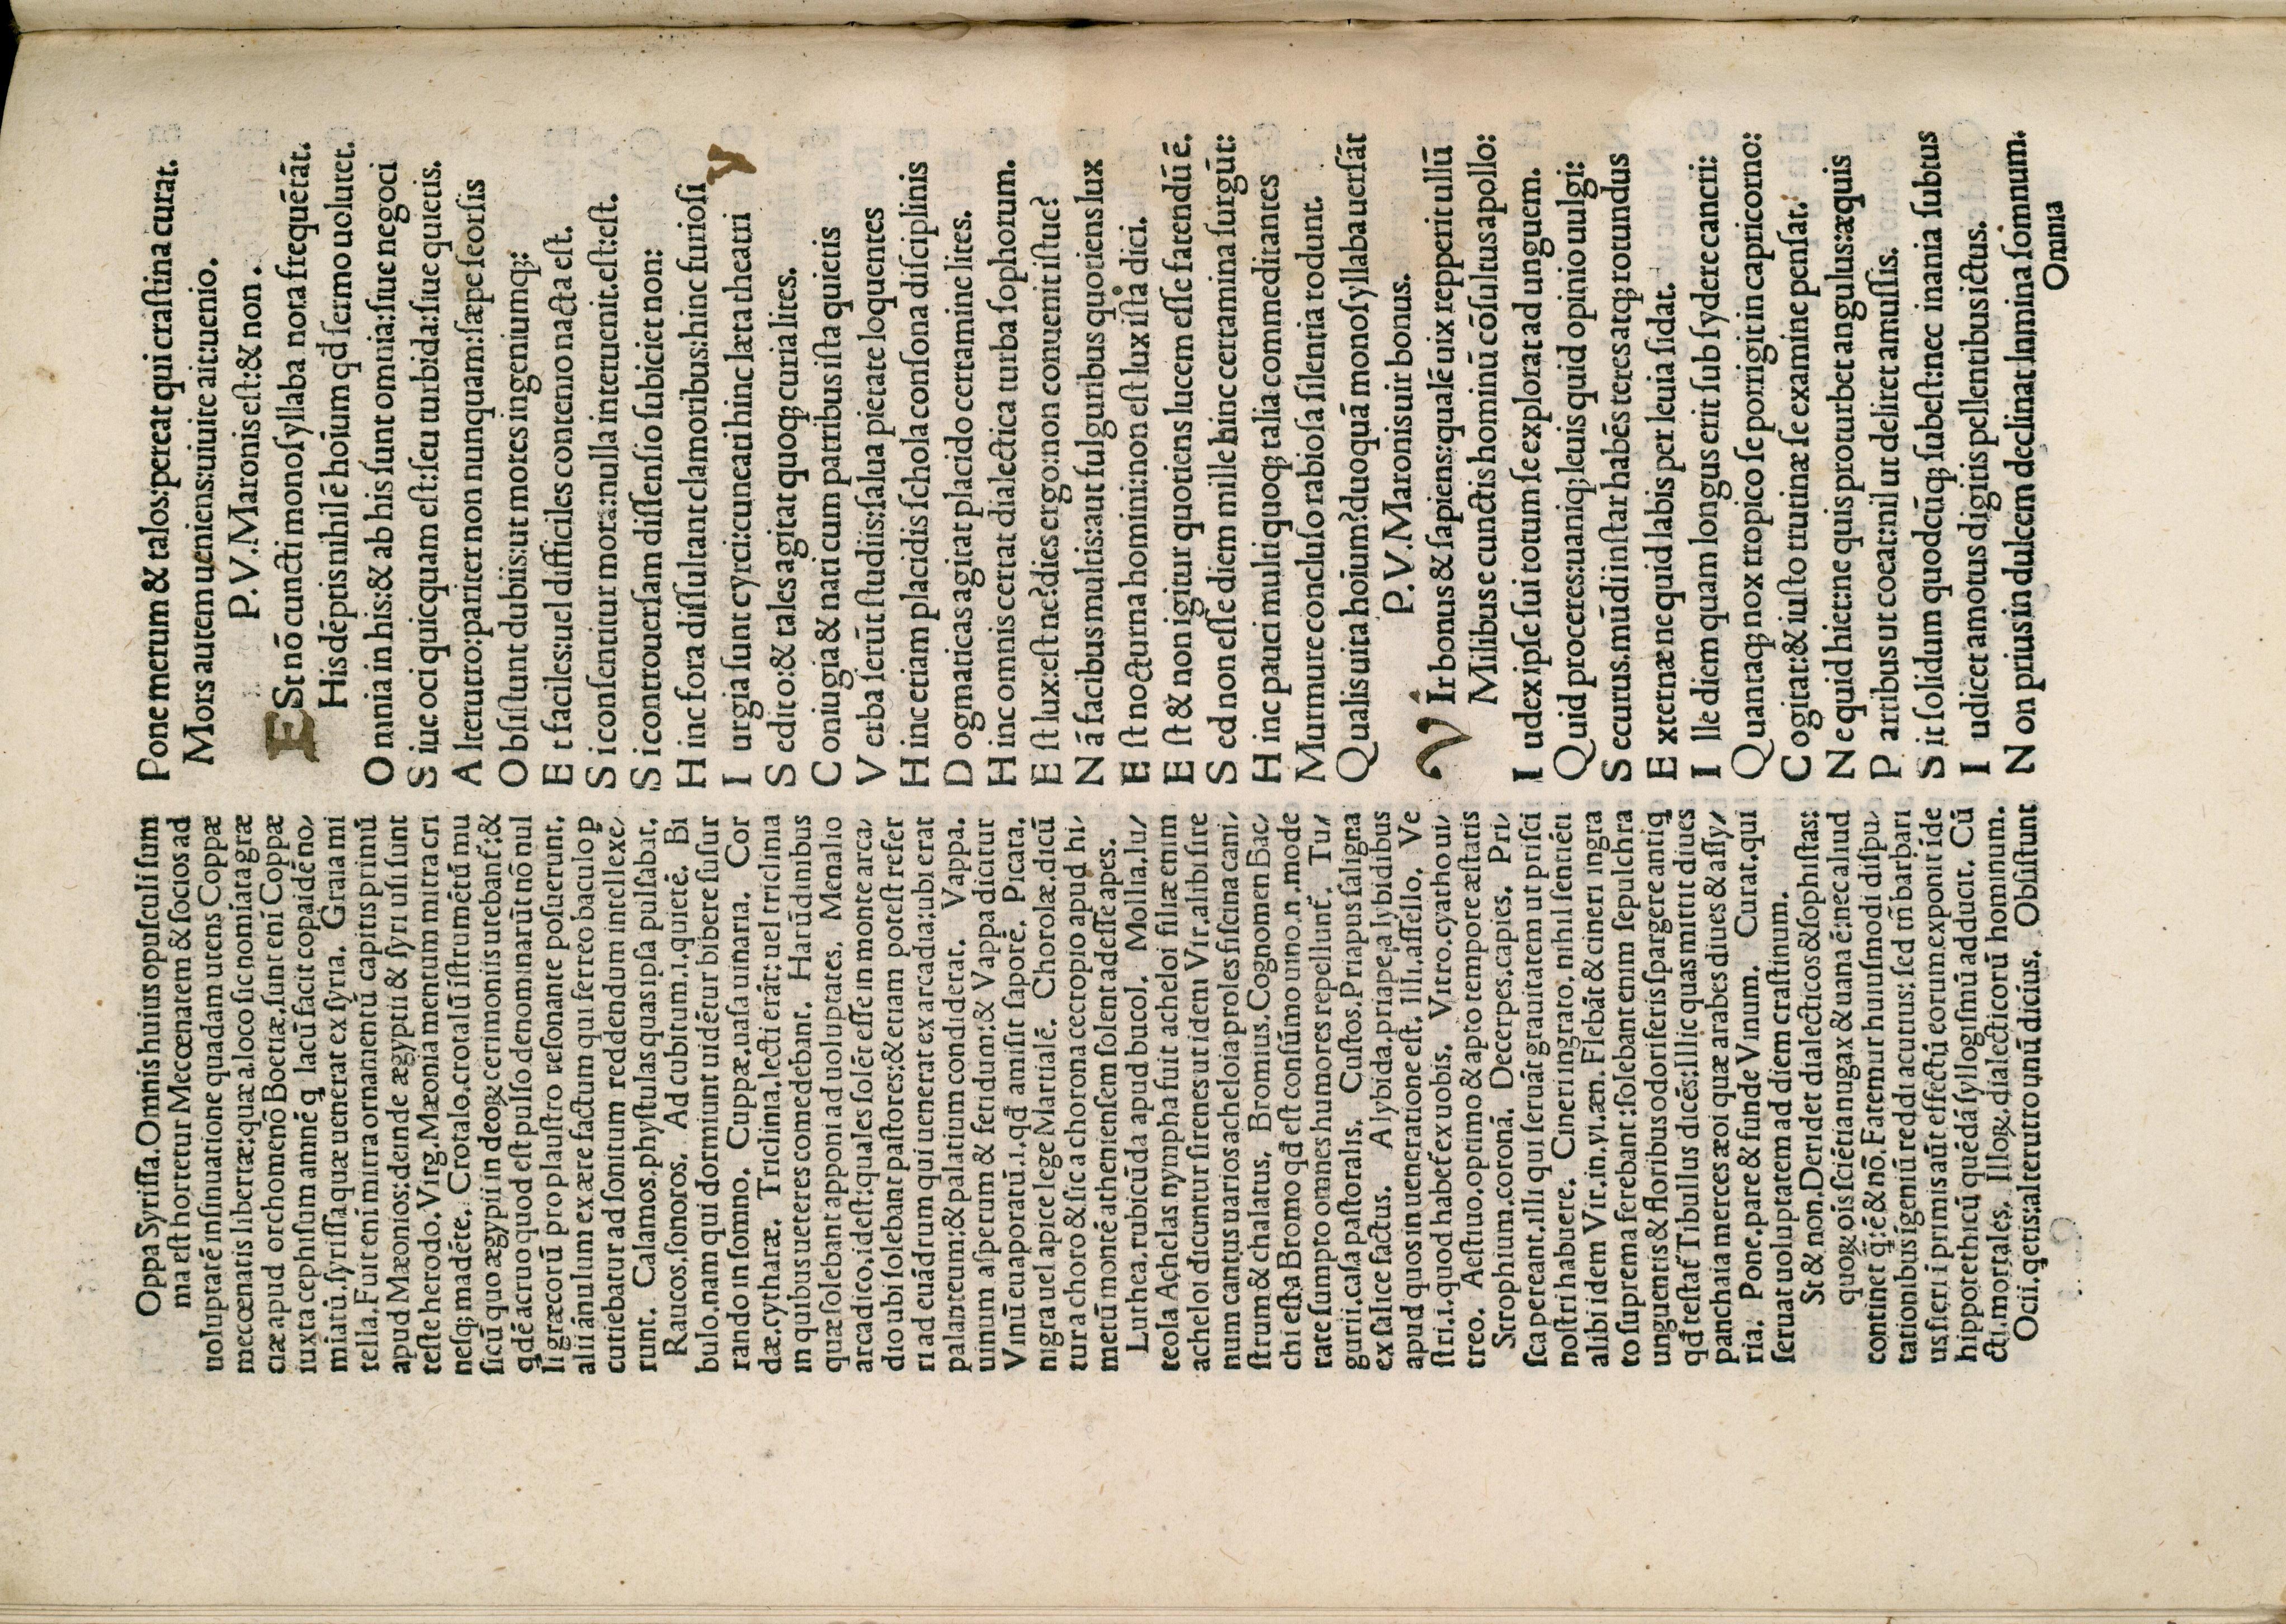 Oppa Syriſſa. Omnis huius opuſculi ſum
ma eſt hortetur Mecœnatem & ſocios ad
uoluptatē inſinuatione quadam utens Coppæ
mecœnatis libertæ: quæ a. loco ſic nomiata græ
ciæ apud orchomenō Boetiæ. ſunt enī Coppæ
iuxta cephiſum amnē q lacū facit copaidē no⸗
miatū. ſyriſſa quæ uenerat ex ſyria. Graia mi
tella. Fuit enī mitra ornamentū capitis primū
apud Mæonios: deinde ægyptii & ſyri uſi ſunt
teſte herodo. Virg. Mæonia mentum mitra cri
neſq; madēte. Crotalo. crotalū īſtrumētū mu
ſicū quo ægypii in deoꝝ cerimoniis utebant̄: &
qdē a cruo quod eſt pulſo denominarūt nō nul
li græcorū pro plauſtro reſonante poſuerunt.
alii ānulum ex ære factum qui ferreo baculo ꝑ
cutiebatur ad ſonitum reddendum intellexe⸗
runt. Calamos. phyſtulas quas ipſa pulſabat.
Raucos. ſonoros. Ad cubitum. i. quietē. Bi
bulo. nam qui dormiunt uidētur bibere ſuſur
rando in ſomno. Cuppæ. uaſa uinaria. Cor
dæ. cytharæ. Triclinia. lecti erāt: uel triclinia
in quibus ueteres comedebant. Harūdinibus
quæ ſolebant apponi ad uoluptates. Menalio
arcadico. ideſt: quales ſolēt eſſe in monte arca⸗
dio ubi ſolebant paſtores: & etiam poteſt refer
ri ad euādrum qui uenerat ex arcadia: ubi erat
palanteum: & palatium condiderat. Vappa.
uinum aſperum & fetidum: & Vappa dicitur
Vinū euaporatū. i. qd̄ amiſit ſaporē. Picata.
nigra uel apice lege Martialē. Chorolæ. dicū
tura choro & ſic a chorona cecropio apud hi⸗
metū montē athenienſem ſolent adeſſe apes.
Luthea. rubicūda apud bucol. Mollia. lu⸗
teola Achelas nympha fuit acheloi filiæ enim
acheloi dicuntur ſirenes ut idem Vir. alibi ſire
num cantus uarios acheloia proles fiſcina cani⸗
ſtrum & chalatus. Bromius. Cognomen Bac⸗
chi eſt: a Bromo qd̄ eſt conſūmo uino. n. mode
rate ſumpto omnes humores repellunt̄. Tu⸗
gurii. caſa paſtoralis. Cuſtos. Priapus ſaligna
ex ſalice factus. Alybida. priape. a lybidibus
apud quos in ueneratione eſt. Illi. aſſello. Ve
ſtri. i. quod habet̄ ex uobis. Vitro. cyatho ui⸗
treo. Aeſtiuo. optimo & apto tempore æſtatis
Strophium. coronā. Decerpes. capies. Pri⸗
ſca pereant. illi qui ſeruāt grauitatem ut priſci
noſtri habuere. Cineri ingrato. nihil ſentiēti
alibi idem Vir. in. vi. æn. Flebāt & cineri ingra
to ſuprema ferebant: ſolebant enim ſepulchra
unguentis & floribus odoriferis ſpargere antiq
qd̄ teſtat̄ Tibullus dicēs: Illic quas mittit diues
panchaia merces æoi quæ arabes diues & aſſy⸗
ria. Pone. pare & funde Vinum. Curat. qui
ſeruat uoluptatem ad diem craſtinum.
St & non. Deridet dialecticos & ſophiſtas:
quoꝝ oīs ſciētia nugax & uana ē: nec aliud
continet q̄: ē & nō. Fatemur huiuſmodi diſpu⸗
tationibus īgeniū reddi acutius: ſed m̄ barbari
us fieri i primis aūt effectū eorum exponit ide
hippotethicū quēdā ſyllogiſmū adducit. Cū
cti. mortales. Illoꝝ. dialecticorū hominum.
Ocii. qetis: alterutro unū dicius. Obſiſtunt
Pone merum & talos: pereat qui craſtina curat.
Mors autem ueniens: uiuite ait: uenio.
P. V. Maronis eſt: & non.
ESt nō cuncti monoſyllaba nota frequētāt.
His dēptis nihil ē hoīum qd ſermo uolutet.
Omnia in his: & ab his ſunt omnia: ſiue negoci
Siue oci quicquam eſt: ſeu turbida: ſiue quietis.
Alterutro: pariter non nunquam: ſæpe ſeorſis
Obſiſtunt dubiis: ut mores ingeniumq;:
Et faciles: uel difficiles contentio nacta eſt.
Si conſentitur mora: nulla interuenit. eſt: eſt.
Si controuerſam diſſenſio ſubiciet non:
Hinc fora diſſultant clamoribus: hinc furioſi
Iurgia ſunt cyrci: cuneati hinc læta theatri
Sedito: & tales agitat quoq; curia lites.
Coniugia & nati cum patribus iſta quietis
Verba ſerūt ſtudiis: ſalua pietate loquentes
Hinc etiam placidis ſchola conſona diſciplinis
Dogmaticas agitat placido certamine lites.
Hinc omnis certat dialectica turba ſophorum.
Eſt lux: eſt ne? dies ergo: non conuenit iſtuc?
Nā facibus multis: aut fulguribus quotiens lux
Eſt nocturna homini: non eſt lux iſta dici.
Eſt & non igitur quotiens lucem eſſe fatendū ē.
Sed non eſſe diem mille hinc certamina ſurgūt:
Hinc pauci multi quoq; talia commeditantes
Murmure concluſo rabioſa ſilentia rodunt.
Qualis uita hoīum? duo quā monoſyllaba uerſāt
P. V. Maronis uir bonus.
VIr bonus & ſapiens: qualē uix repperit ullū
Milibus e cunctis hominū cōſultus apollo:
Iudex ipſe ſui totum ſe explorat ad unguem.
Quid proceres: uaniq; leuis quid opinio uulgi:
Securus. mūdi inſtar habēs teres atq; rotundus
Externæ ne quid labis per leuia ſidat.
Ille diem quam longus erit ſub ſydere cancri:
Quantaq; nox tropico ſe porrigit in capricorno:
Cogitat: & iuſto trutinæ ſe examine penſat.
Ne quid hiet: ne quis proturbet angulus: æquis
Partibus ut coeat: nil ut deliret amuſſis.
Sit ſolidum quodcūq; ſubeſt: nec inania ſubtus
Iudicet amotus digitis pellentibus ictus.
Non prius in dulcem declinat lumina ſomnum.
Omnia